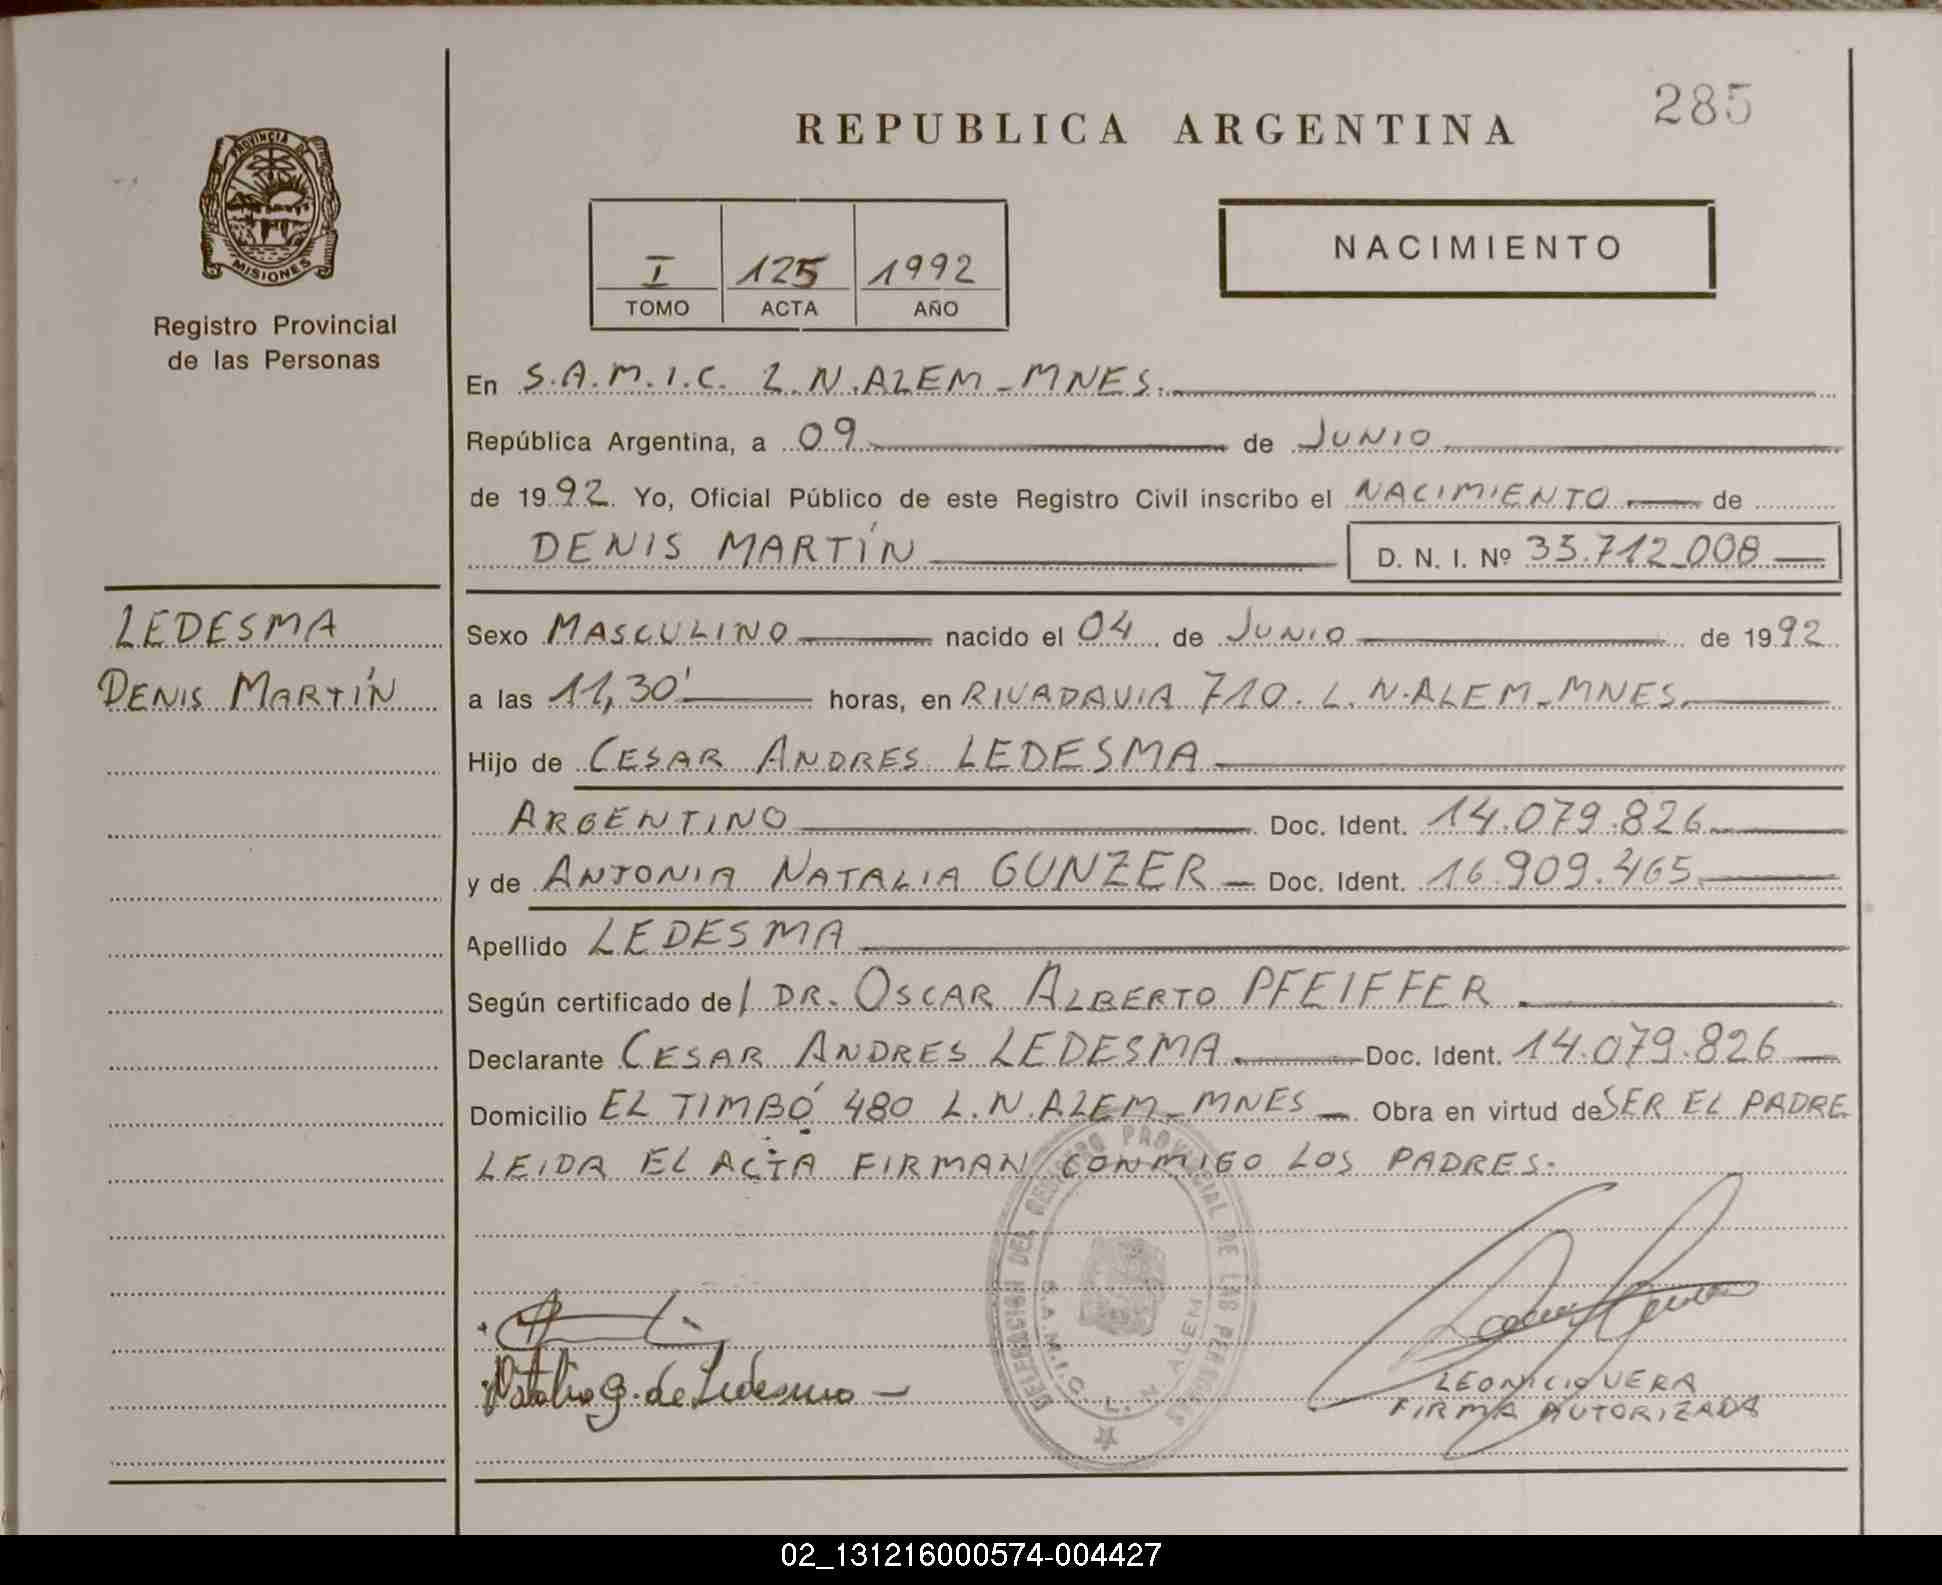 285
REPUBLICA ARGENTINA
PROVINCIA DE
MISIONES
Registro Provincial
de las Personas
NACIMIENTO
I 125 1992
TOMO ACTA AÑO
En S.A.M.I.C. L.N.ALEM_MNES.
República Argentina, a 09 de JUNIO
de 1992. Yo, Oficial Público de este Registro Civil inscribo el NACIMIENTO de
DENIS MARTÍN D. N. I. Nº 33.712_008
LEDESMA
DENIS MARTÍN
Sexo MASCULINO nacido el 04 de JUNIO de 1992
a las 11,30' horas, en RIVADAVIA 710. L.N.ALEM_MNES.
Hijo de CESAR ANDRES LEDESMA
ARGENTINO Doc. Ident. 14.079.826
y de ANTONIA NATALIA GUNZER Doc. Ident. 16.909.465
Apellido LEDESMA
Según certificado de/ DR. OSCAR ALBERTO PFEIFFER
Declarante CESAR ANDRES LEDESMA Doc. Ident. 14.079.826
Domicilio EL TIMBÓ 480 L.N.ALEM_MNES Obra en virtud de SER EL PADRE
LEIDA EL ACTA FIRMAN CONMIGO LOS PADRES.
DELEGACION DEL REGISTRO PROVINCIAL DE LAS PERSONAS
S.A.M.I.C. L. N. ALEM
Natalia G. de Ledesma
LEONICIO VERA
FIRMA AUTORIZADA
02_131216000574-004427